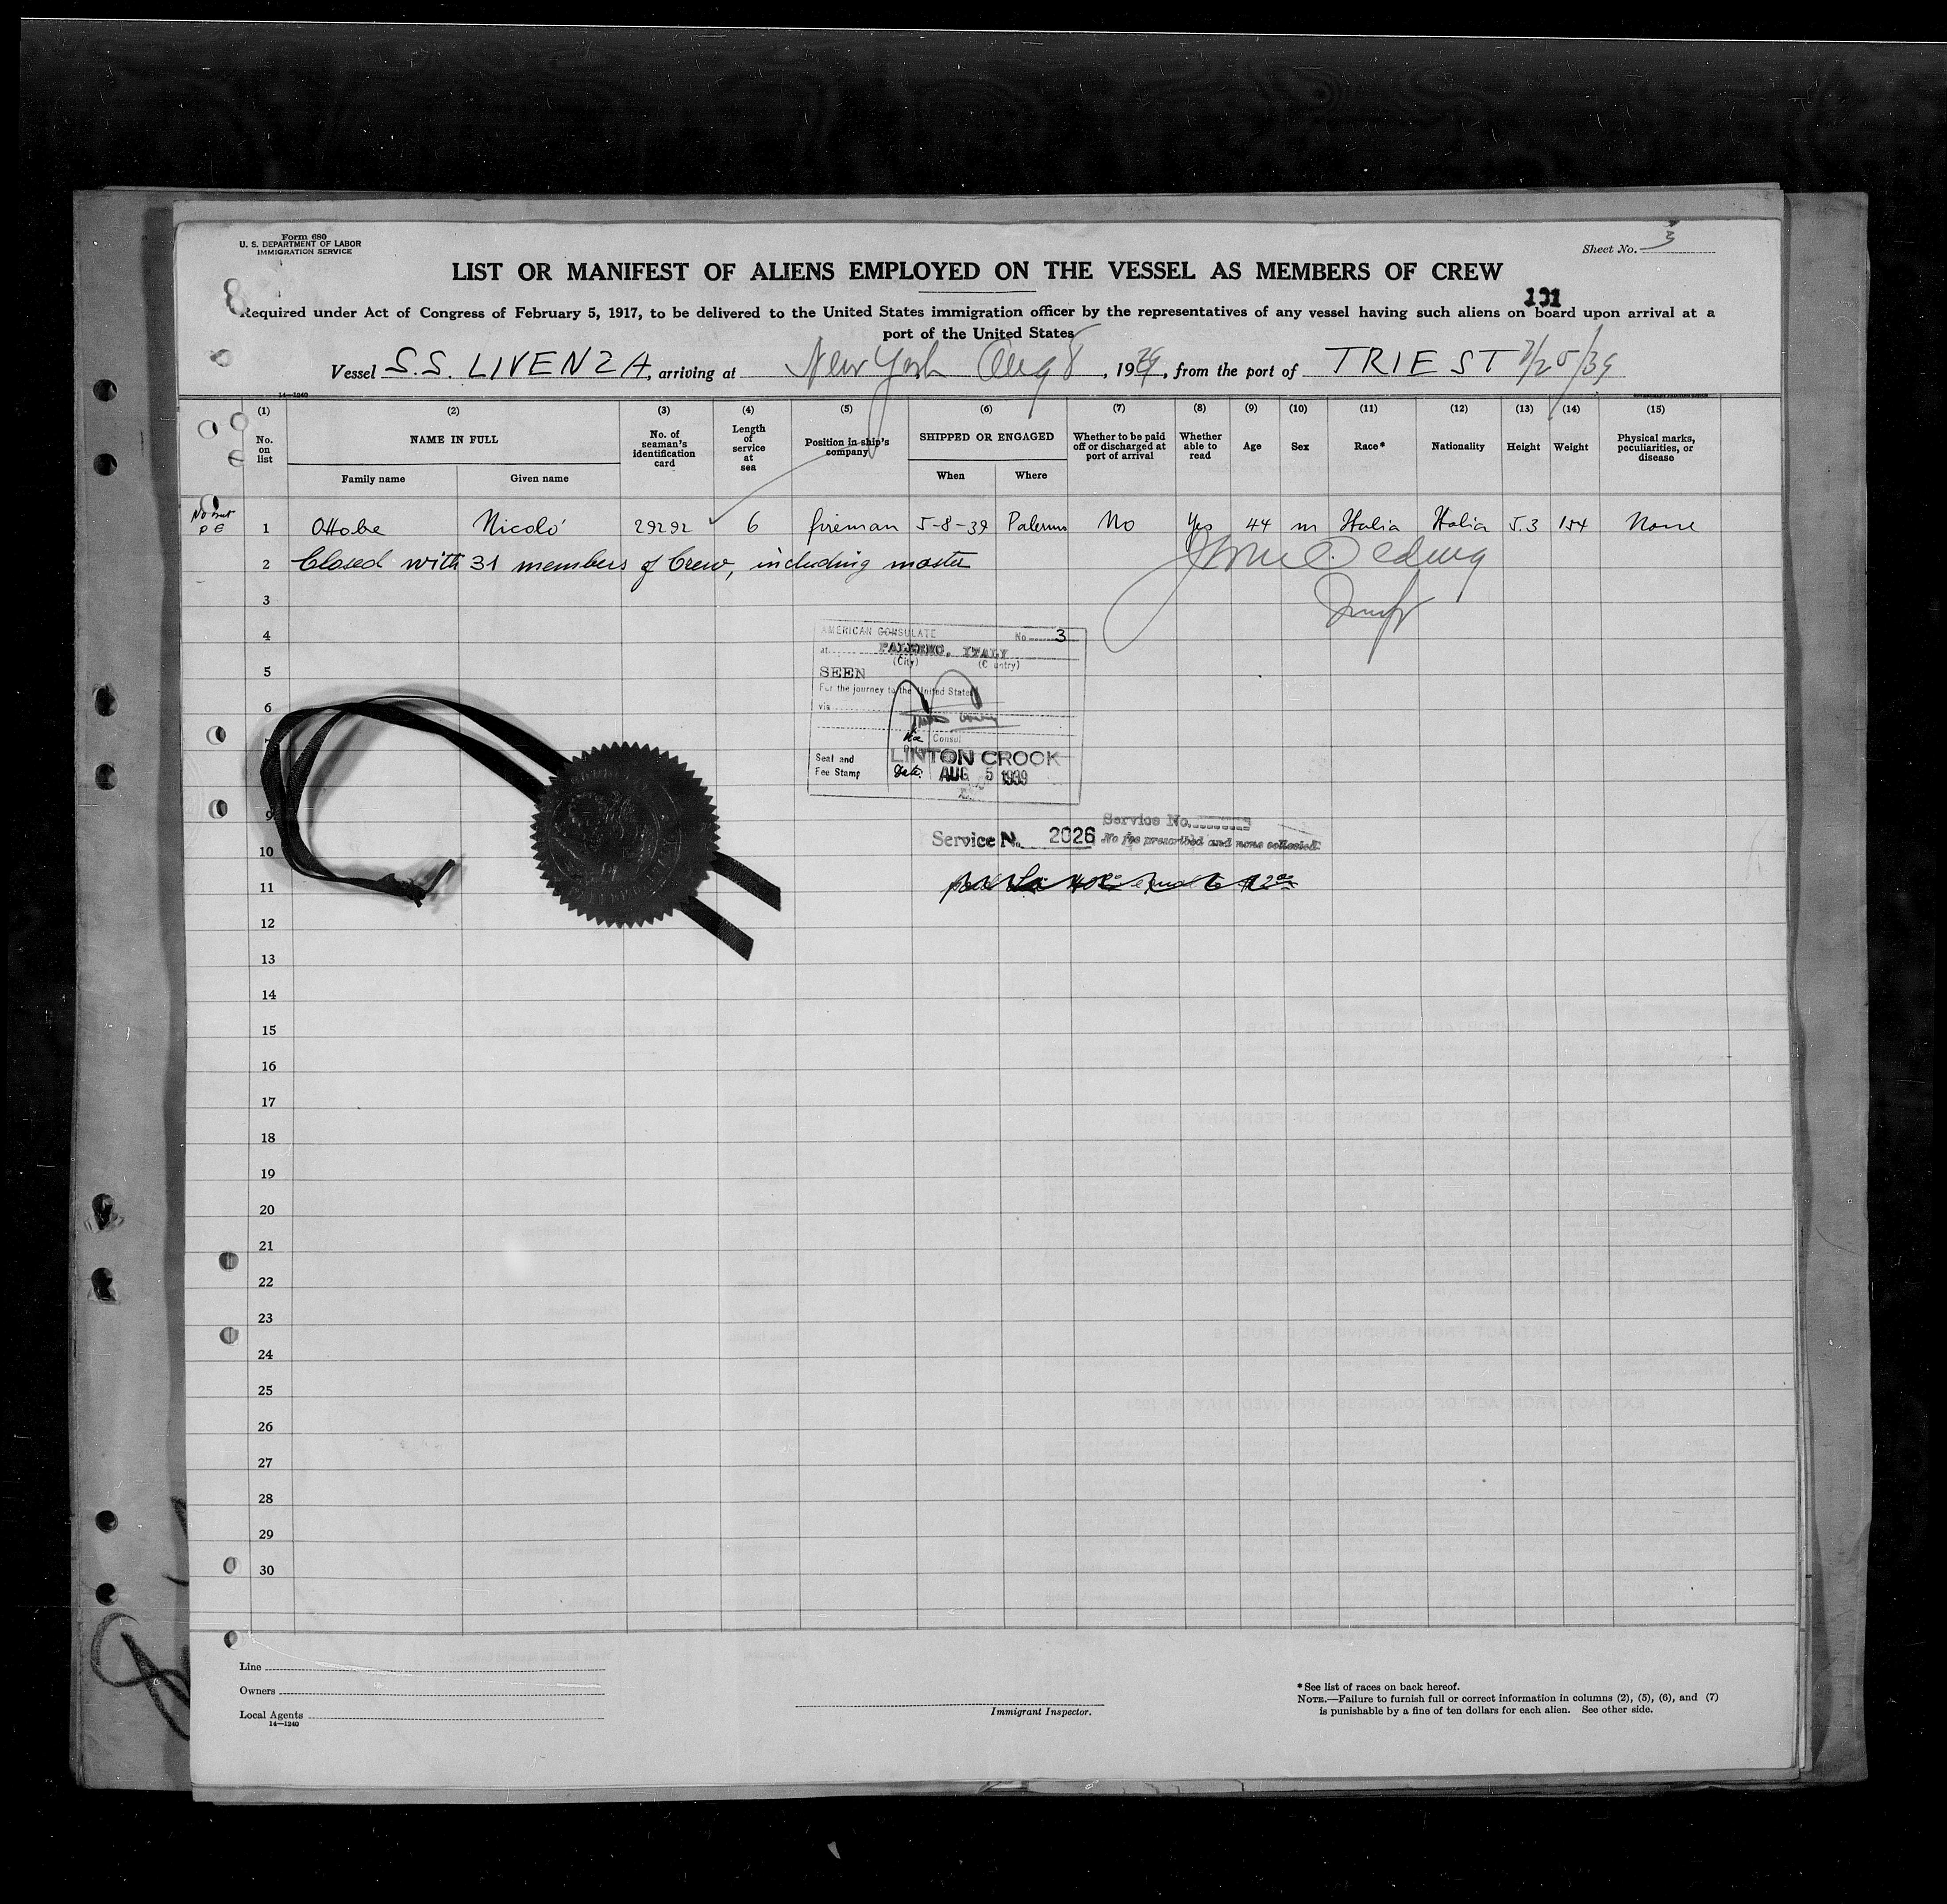 Form 680
U. S. DEPARTMENT OF LABOR
IMMIGRATION SERVICE
Sheet No. 3
LIST OR MANIFEST OF ALIENS EMPLOYED ON THE VESSEL AS MEMBERS OF CREW
101
Required under Act of Congress of February 5, 1917, to be delivered to the United States immigration officer by the representatives of any vessel having such aliens on board upon arrival at a
port of the United States
Vessel S.S. LIVENZA, arriving at New York Aug 8, 1939, from the port of TRIEST 7/25/39
14—1240
(1) (2) (3) (4) (5) (6) (7) (8) (9) (10) (11) (12) (13) (14) (15)
No. on list
NAME IN FULL
Family name
Given name
No. of seaman's identification card
Length of service at sea
Position in ship's company
SHIPPED OR ENGAGED
When
Where
Whether to be paid off or discharged at port of arrival
Whether able to read
Age
Sex
Race*
Nationality
Height
Weight
Physical marks, peculiarities, or disease
1 Ottobre Nicoló 29292 6 fireman 5-8-39 Palermo No Yes 44 m Italia Italia 5.3 154 None
2 Closed with 31 members of Crew, including master
3
4
5
6
AMERICAN CONSULATE No 3
at PALERMO, ITALY
(City) (Country)
SEEN
For the journey to the United States
via
Vice Consul
LINTON CROOK
Seal and
Fee Stamp
Date. AUG 5 1939
9
Service No.
Service No. 2026 No fee prescribed and none collected.
10
11
12
13
14
15
16
17
18
19
20
21
22
23
24
25
26
27
28
29
30
Line
Owners
Local Agents
14—1240
Immigrant Inspector.
* See list of races on back hereof.
NOTE.—Failure to furnish full or correct information in columns (2), (5), (6), and (7)
is punishable by a fine of ten dollars for each alien. See other side.